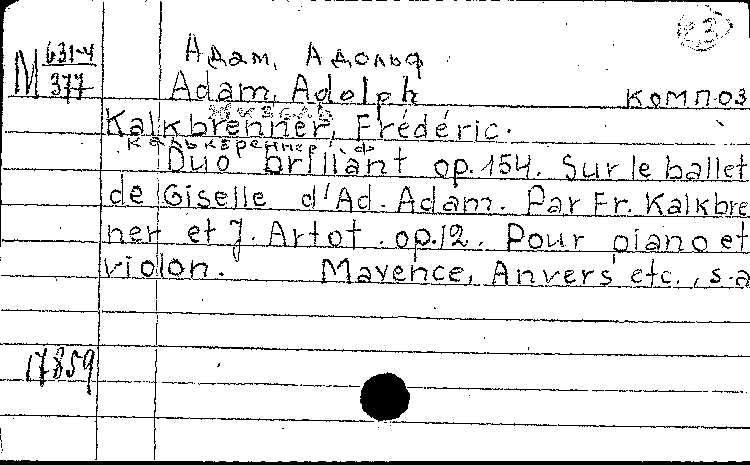 Адам, Адольф
М 631-4
377
Adam, Adolph
КОМПОЗ
Kalkbrenner, Frédéric.
Калькбреннер, Ф
Duo brillant op. 154. Sur le ballet
de Giselle d'Ad. Adam. Par Fr. Kalkbre
ner et J. Artot. op. 12. Pour piano et
violon. Mayence, Anvers etc., s.a
17859